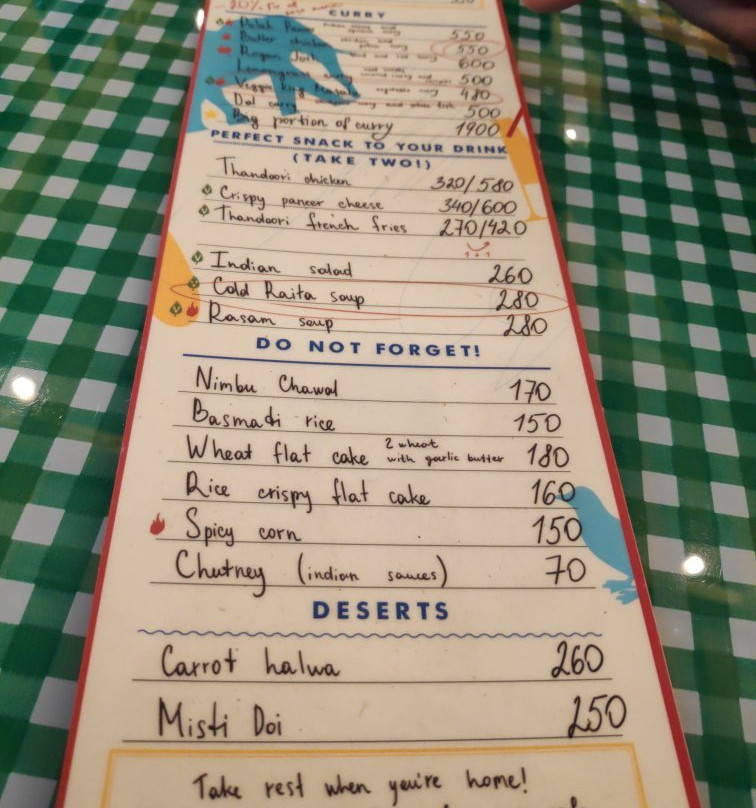 CURRY
Palak Paneer 550
Butter chicken 550
Rogan Josh 600
Lemongrass curry 500
Veggie king Masala 480
Dal curry 500
Big portion of curry 1900
PERFECT SNACK TO YOUR DRINK
(TAKE TWO!)
Thandoori chicken 320/580
Crispy paneer cheese 340/600
Thandoori french fries 270/420
1+1
Indian salad 260
Cold Raita soup 280
Rasam soup 280
DO NOT FORGET!
Nimbu Chawal 170
Basmati rice 150
Wheat flat cake 2 wheat with garlic butter 180
Rice crispy flat cake 160
Spicy corn 150
Chutney (indian sauces) 70
DESERTS
Carrot halwa 260
Misti Doi 250
Take rest when you're home!